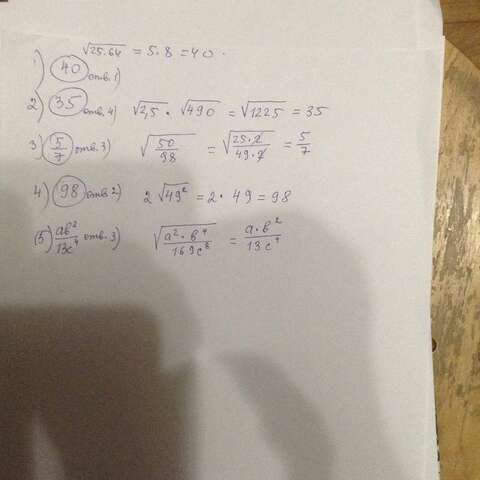 1) 40 отв. 1) √25·64 = 5·8 = 40.
2) 35 отв. 4) √2,5 · √490 = √1225 = 35
3) 5/7 отв. 3) √50/98 = √25·2/49·2 = 5/7
4) 98 отв 2) 2√49² = 2·49 = 98
(5) aв²/13c⁴ отв. 3) √a²·в⁴/169c⁸ = a·в²/13c⁴